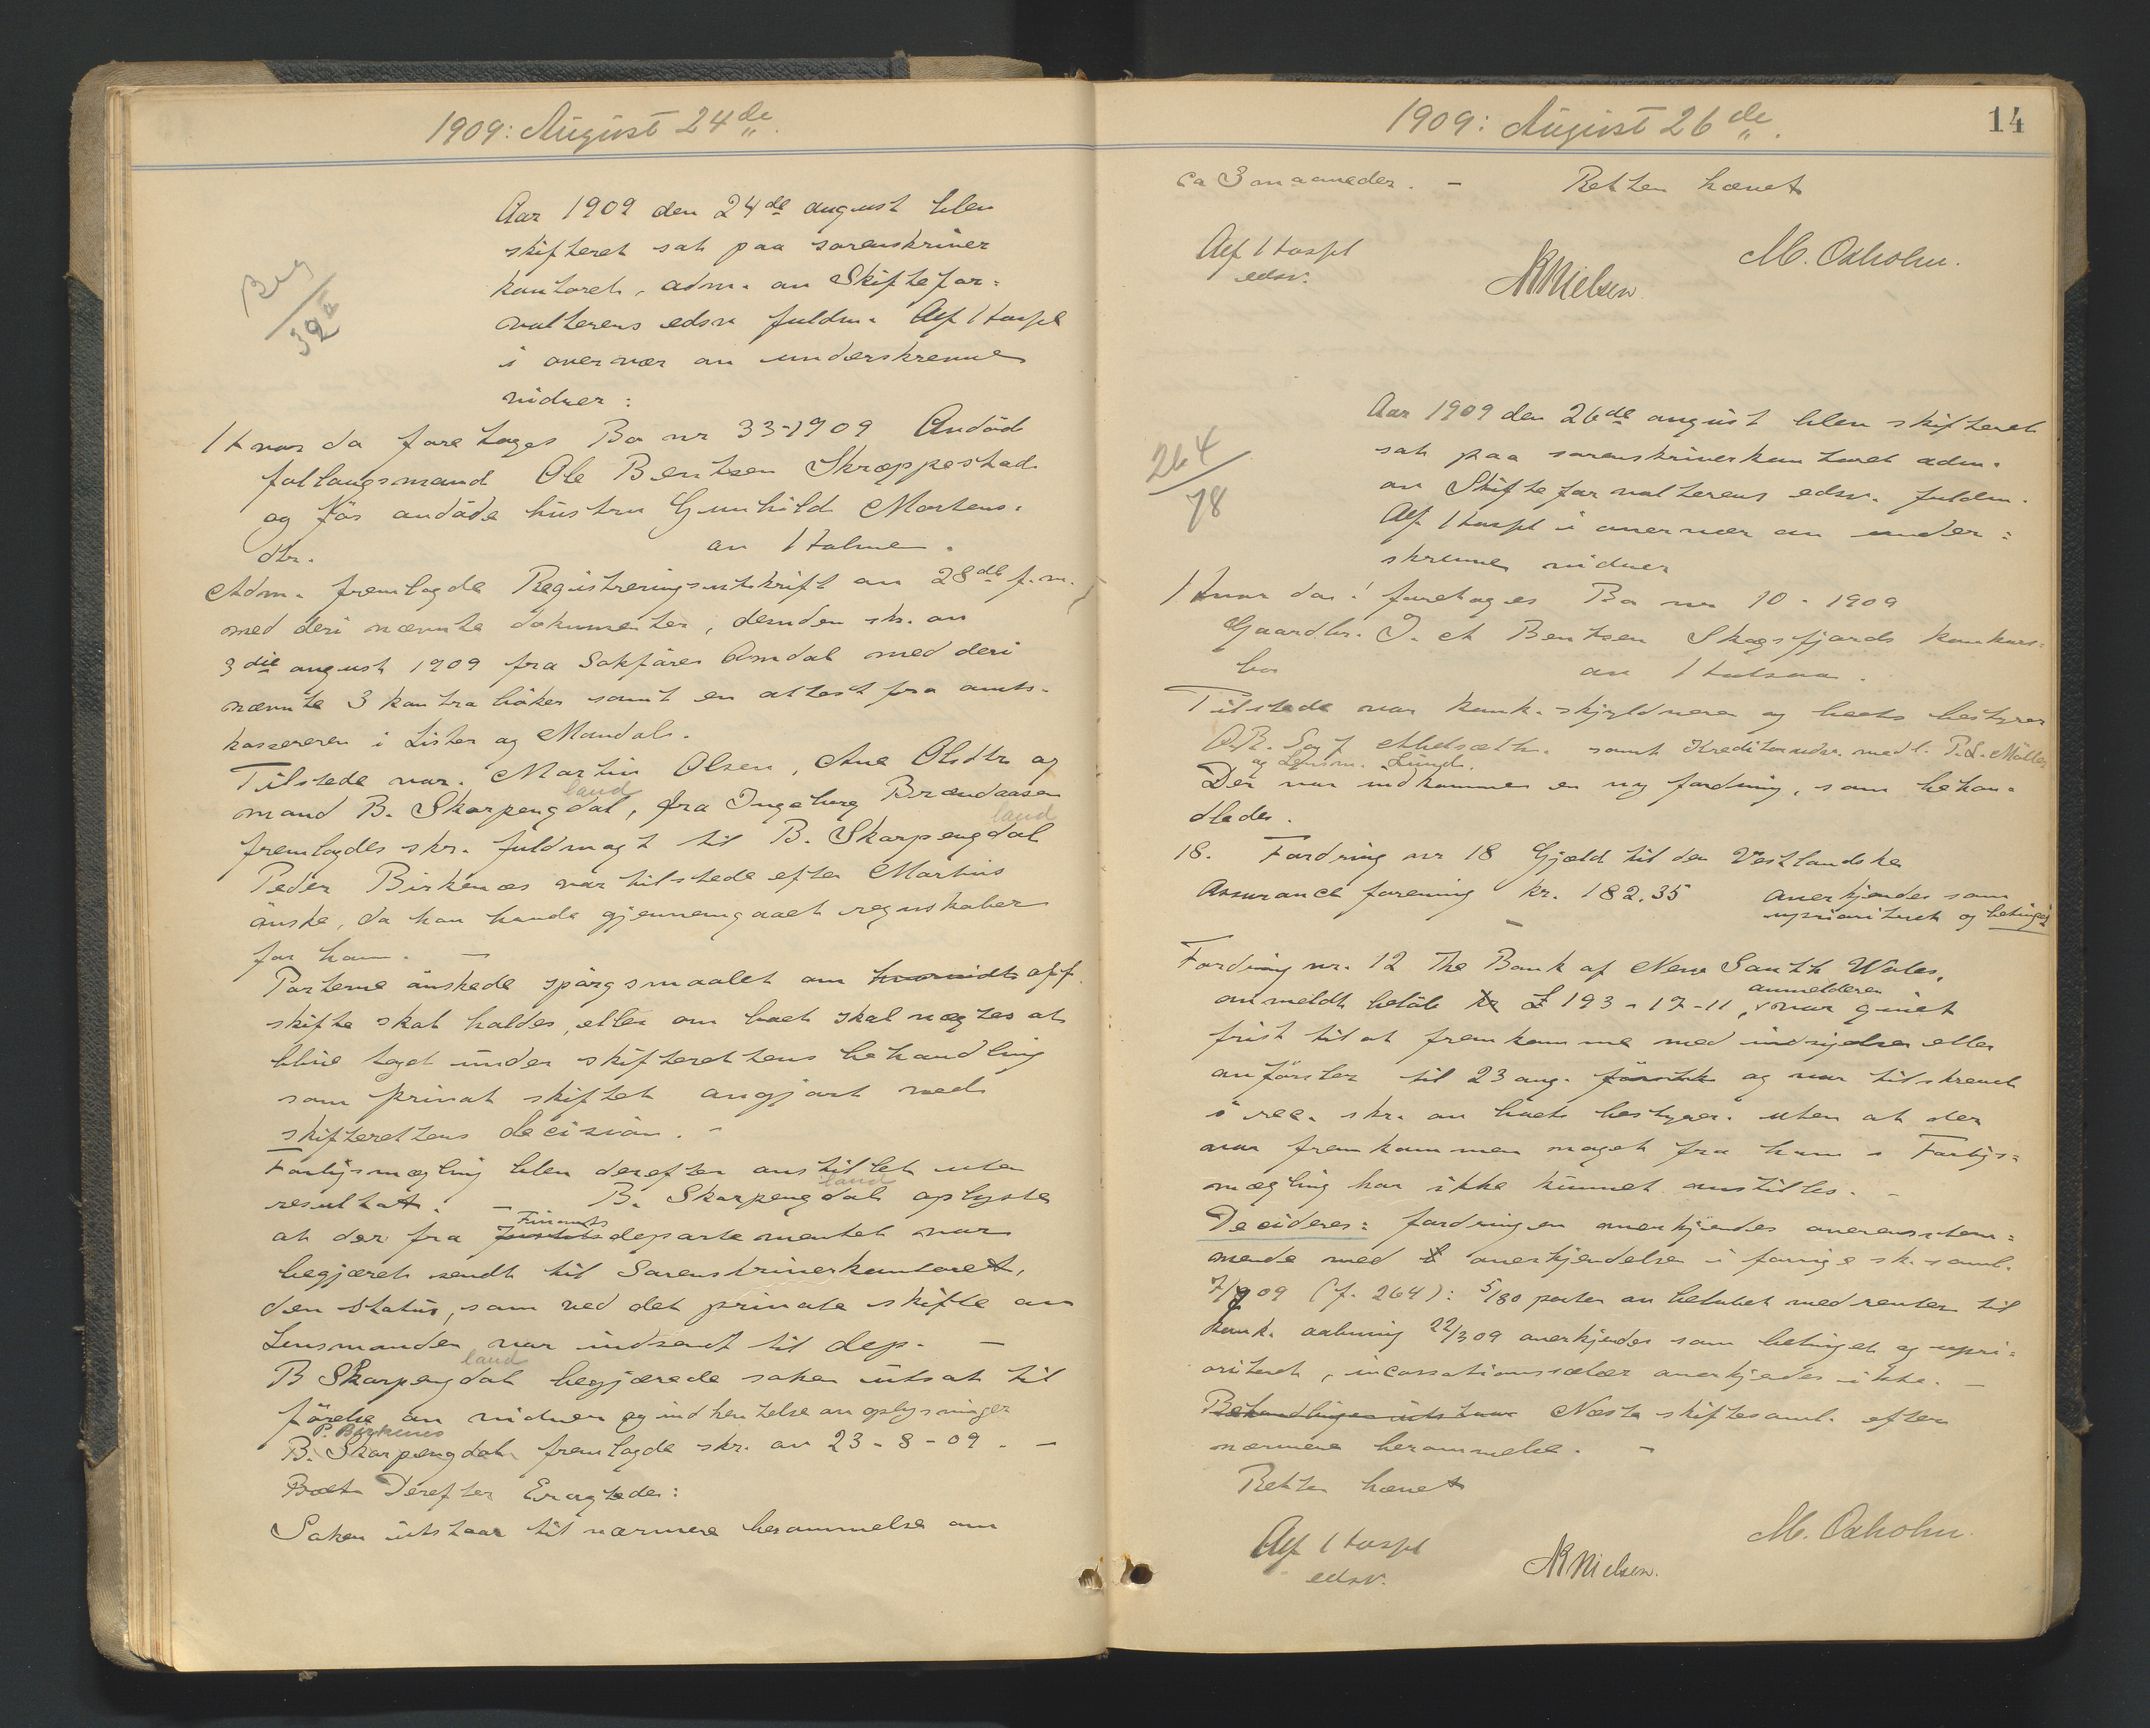 1909: August 24de
Aar 1909 den 24de august blev
skifteret sat paa sorenskriver
kontoret, adm. av Skiftefor=
valterens edsv fuldm. Alf
i overvær av underskrevne
vidner:
39a
Hvor da foretages Bo nr 33-1909 Avdöd
follaugsmand Ole Bentsen Skræppestad
og för avdöde hustru Gunhild Mortens=
dtr. av Holme.
Adm. fremlagde Registreringsutskrift av 28de f.m.
med deri nævnte dokumenter, desuden skr. av
3die august 1909 fra Sakförer Omdal med deri
nævnte 3 kontraböker samt en attest fra amts-
kassereren i Lister og Mandals.
Tilstede var. Martin Olsen, Ane Olsdtr og
mand B. Skarpengdal, fra Ingeborg Brændaasen
land
fremlagdes skr. fuldmagt til B. Skarpengdal
land
Peder Birkenes var tilstede efter Martins
önske, da han havde gjennemgaaet regnskaber
for ham. —
Parterne önskede spörgsmaalet om hvorvidt off.
skifte skal holdes, eller om boet skal nægtes at
blive taget under skifterettens behandling
som privat skiftet avgjort ved
skifterettens decision. -
Forligsmægling blev derefter anstillet uten
resultat. - B. Skarpengdal oplyste
land
at der fra Justitsdepartementet var
Finants
begjæret sendt til Sorenskriverkontoret,
den status, som ved det private skifte av
Lensmanden var indsendt til dep. —
B Skarpengdal begjærede saken utsat til
land
förelse av vidner og indhentelse av oplysninger
P. Birkenes
B. Skarpengdal fremlagde skr. av 23-8-09. —
Boet Derefter Eragtedes:
Saken utstaar til nærmere berammelse om
1909: August 26de.
14
ca 3 maaneder. - Retten hævet
Alf
edsv.
NNielsen
M. Oxholm.
264/78
Aar 1909 den 26de august blev skifteret
sat paa sorenskriverkontoret adm.
av Skifteforvalterens edsv. fuldm.
Alf i overvær av under=
skrevne vidner
Hvor da: foretoges Bo nr 10-1909
Gaardbr. J. et Bentsen Skogsfjords konkurs=
bo av Halsaa.
Tilstede var konk. skyldneren og boets bestyrer
O.R. samt Kreditorudv. medl. P.L. Möller
og Lensm. Lund.
Der var indkommen en ny fordring, som behan=
dledes.
18. Fordring nr 18 Gjæld til den Vestlandske
Assurance forening kr. 182.35 anerkjendes som
uprioritert og betinget
Fordring nr. 12 The Bank of New South Wales,
anmeldt belöb kr £ 193-17-11, var givet
anmelderen
frist til at fremkomme med indsigelser eller
anförsler til 23 aug. og var tilskrevet
i rec. skr. av boets bestyrer uten at der
var fremkommen noget fra ham. Forligs=
mægling har ikke kunnet anstilles. -
Decideres: fordringen anerkjendes overensstem=
mende med anerkjendelsen i forrige sk. saml.
7/7 09 (f. 264): 5/80 parter av belöbet med renter til
konk. aabning 22/3 09 anerkjendes som betinget og upri=
oritert, incassationssalær anerkjendes ikke. —
Behandlingen utstaar Næste skiftesaml. efter
nærmere berammelse. -
Retten hævet
Alf
edsv.
NNielsen.
M. Oxholm.